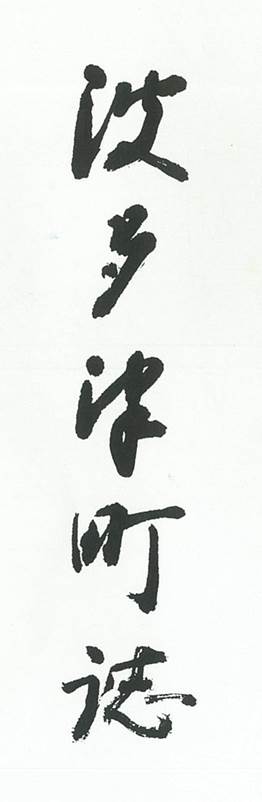 波多津町誌